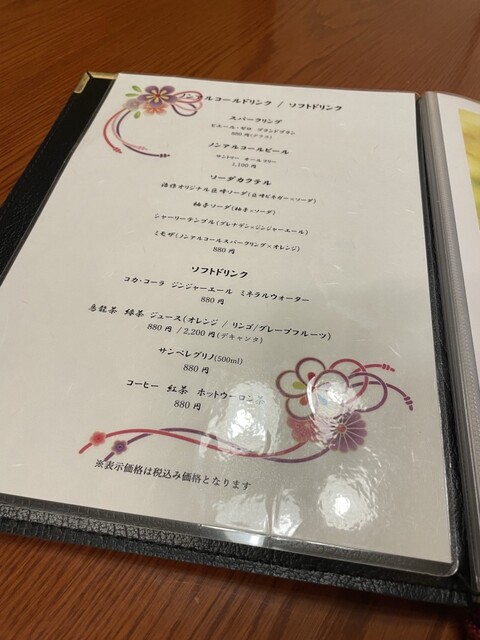 ノンアルコールドリンク / ソフトドリンク
スパークリング
ピエール・ゼロ ブランドブラン
880円(グラス)
ノンアルコールビール
サントリー オールフリー
1,100円
ソーダカクテル
オリジナル巨峰ソーダ(巨峰ビネガー×ソーダ)
柚子ソーダ(柚子×ソーダ)
シャーリーテンプル(グレナデン×ジンジャーエール)
ミモザ(ノンアルコールスパークリング×オレンジ)
880円
ソフトドリンク
コカ・コーラ ジンジャーエール ミネラルウォーター
880円
烏龍茶 緑茶 ジュース(オレンジ / リンゴ/グレープフルーツ)
880円 / 2,200円(デキャンタ)
サンペレグリノ(500ml)
880円
コーヒー 紅茶 ホットウーロン茶
880円
※表示価格は税込み価格となります